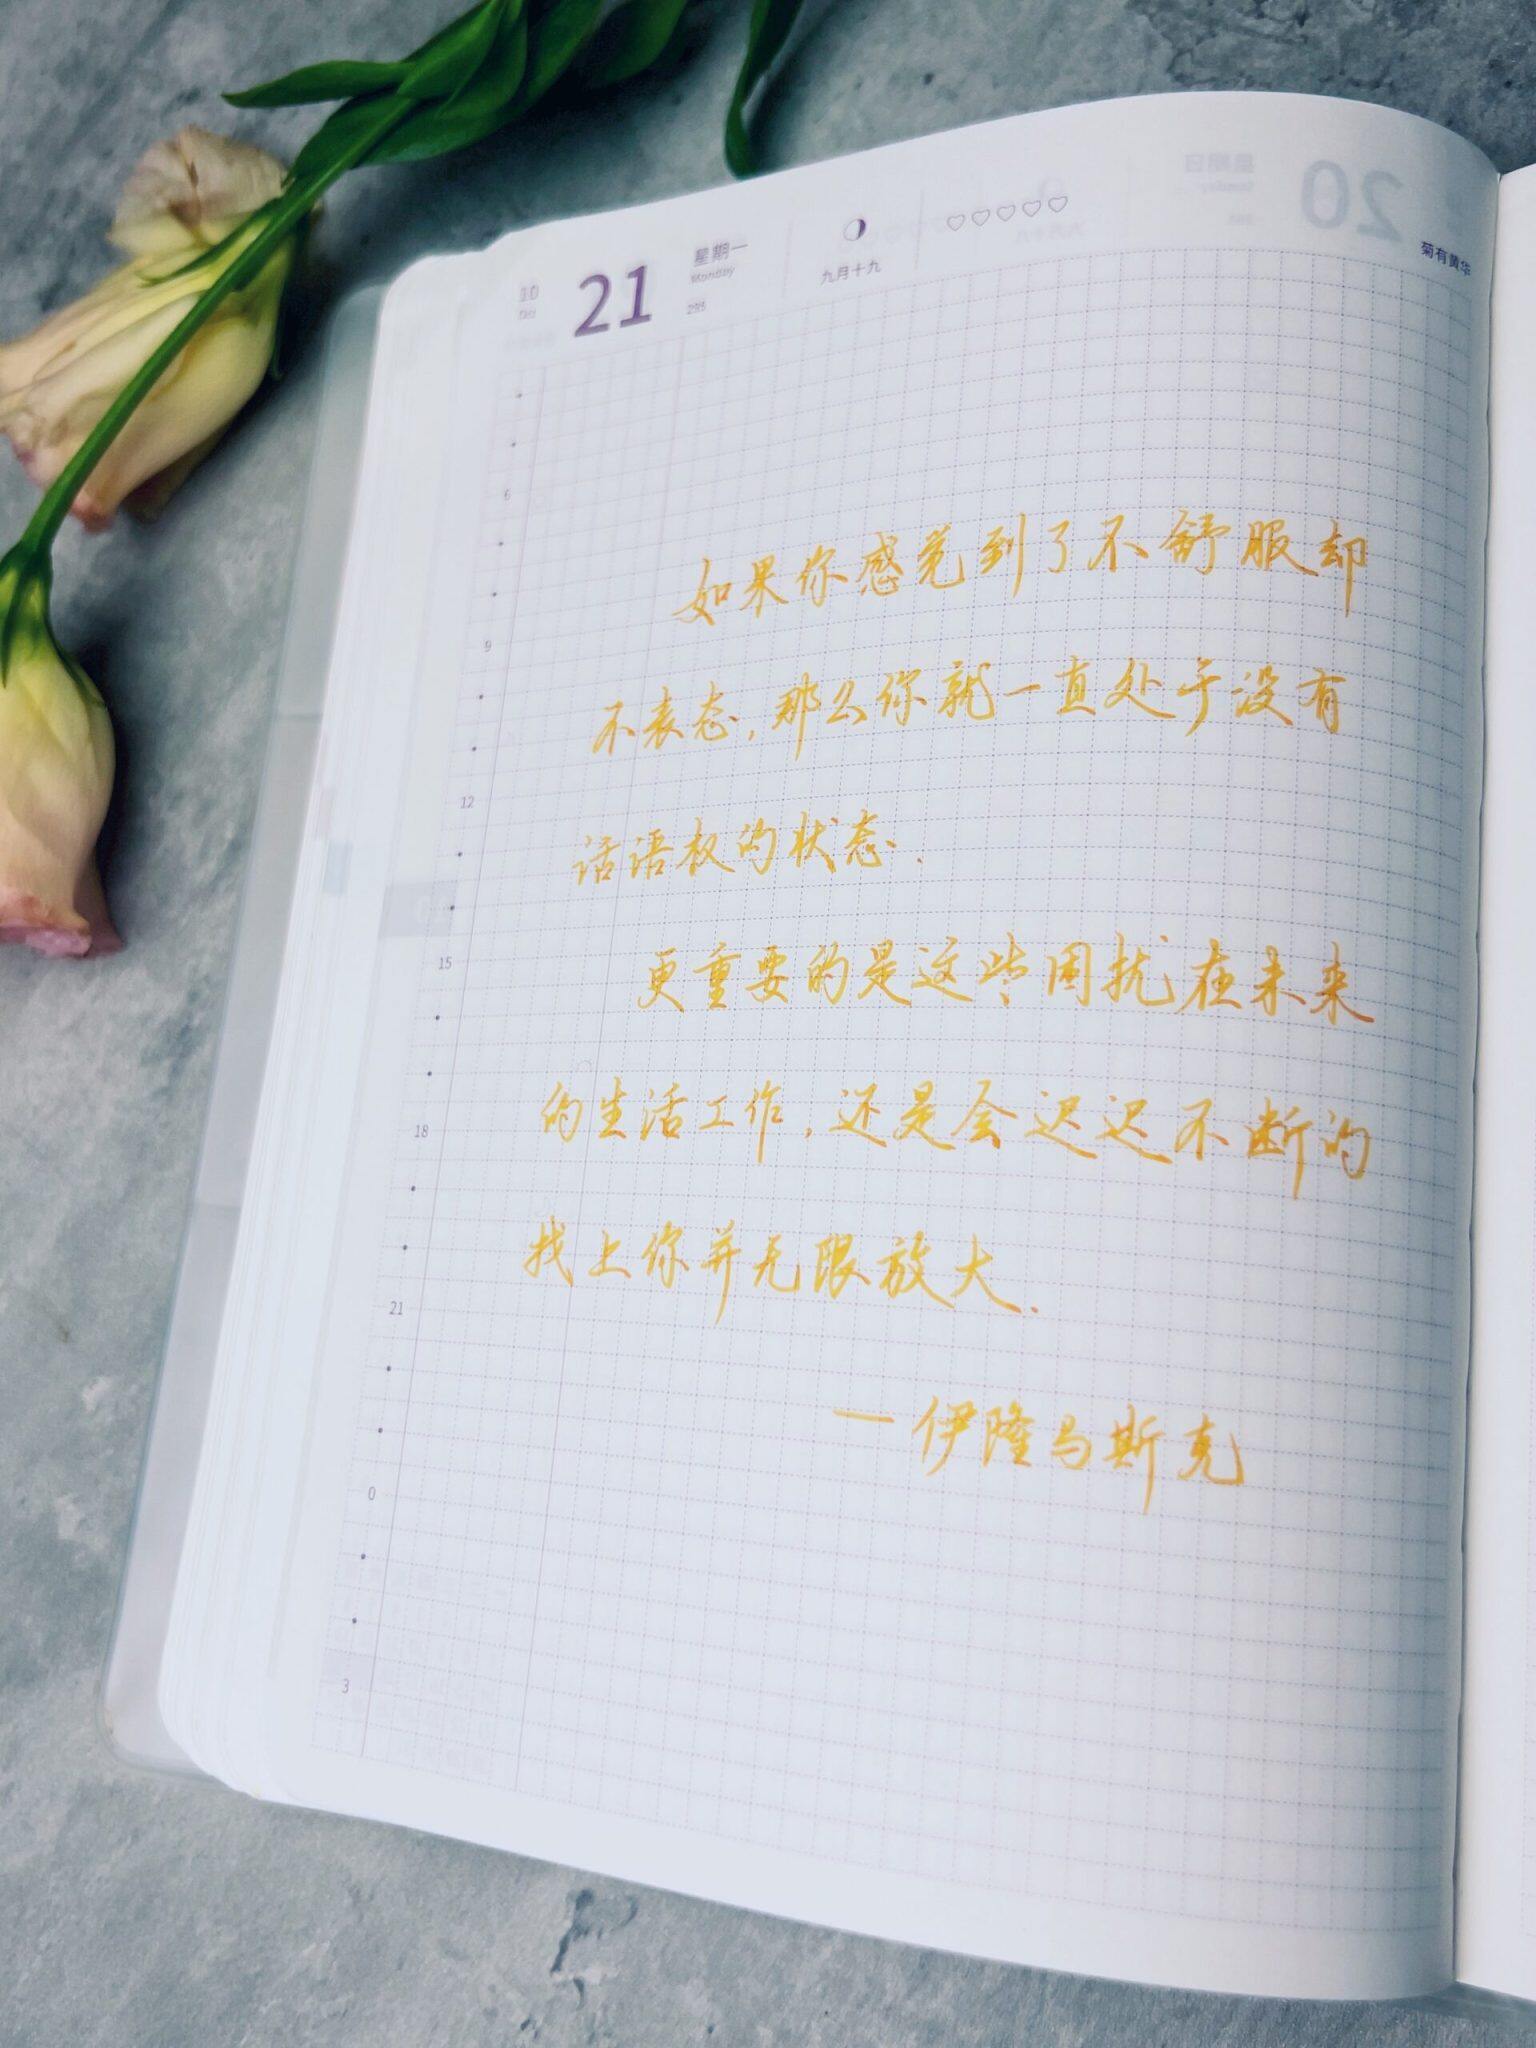 10 21 星期一 九月十九
Oct Monday
295
菊有黄华
20 星期日
Sunday
6
如果你感觉到了不舒服却
9
不表态,那么你就一直处于没有
12
话语权的状态.
15
更重要的是这些困扰在未来
18
的生活工作,还是会迟迟不断的
找上你并无限放大.
21
—伊隆马斯克
0
3